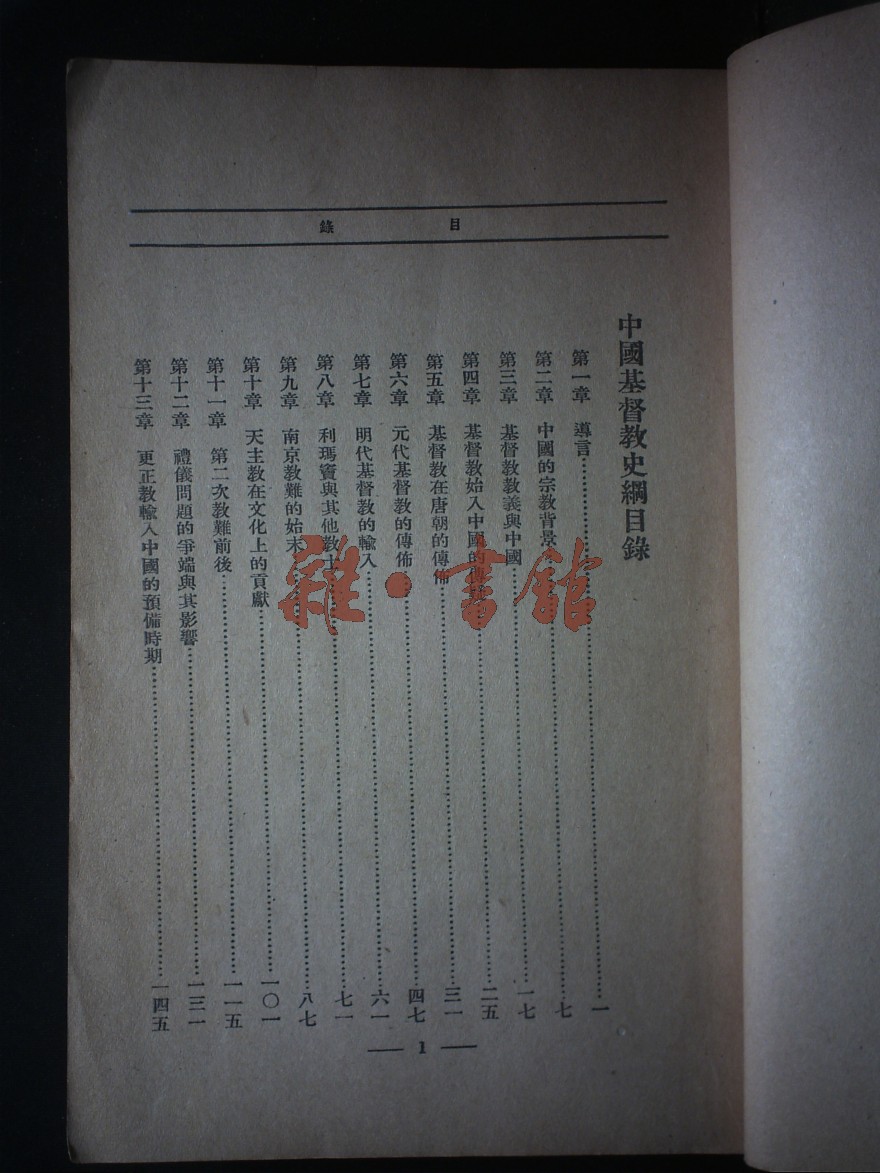 目錄
中國基督教史綱目錄
第一章 導言……一
第二章 中國的宗教背景……七
第三章 基督教教義與中國……一七
第四章 基督教始入中國的傳……二五
第五章 基督教在唐朝的傳佈……三一
第六章 元代基督教的傳佈……四七
第七章 明代基督教的輸入……六一
第八章 利瑪竇與其他教士……七一
第九章 南京教難的始末……八七
第十章 天主教在文化上的貢獻……一〇一
第十一章 第二次教難前後……一一五
第十二章 禮儀問題的爭端與其影響……一三一
第十三章 更正教輸入中國的預備時期……一四五
— 1 —
雜·書館